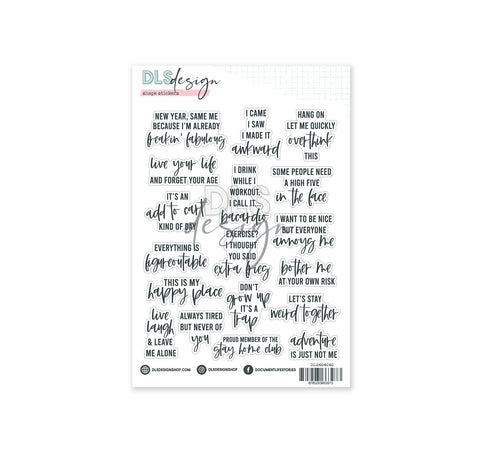 DLSdesign
shape stickers
NEW YEAR, SAME ME
BECAUSE I'M ALREADY
freakin' fabulous
live your life
AND FORGET YOUR AGE
IT'S AN
add to cart
KIND OF DAY
EVERYTHING IS
figureoutable
THIS IS MY
happy place
live
laugh
& LEAVE
ME ALONE
ALWAYS TIRED
BUT NEVER OF
you
I CAME
I SAW
I MADE IT
awkward
I DRINK
WHILE I
WORKOUT.
I CALL IT,
bacardio
EXERCISE?
I THOUGHT
YOU SAID
extra fries
DON'T
grow up
IT'S A
trap
PROUD MEMBER OF THE
stay home club
HANG ON
LET ME QUICKLY
overthink
THIS
SOME PEOPLE NEED
A HIGH FIVE
in the face
I WANT TO BE NICE
BUT EVERYONE
annoys me
bother me
AT YOUR OWN RISK
LET'S STAY
weird together
adventure
IS JUST NOT ME
DLS
design
DLSDESIGNSHOP.COM
DLSDESIGNSHOP
DOCUMENTLIFESTORIES